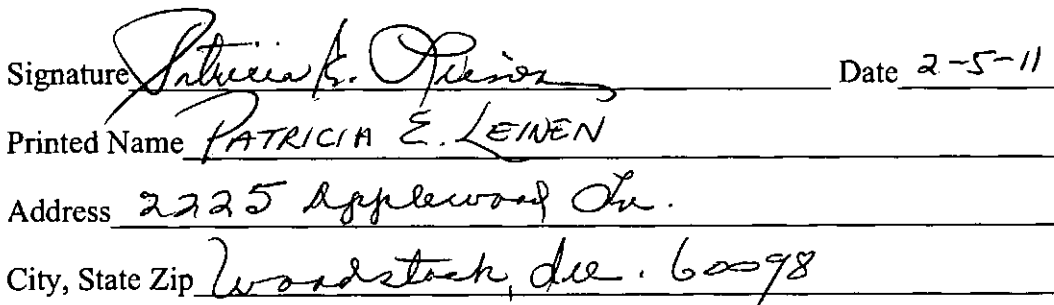 Signature Patricia E. Leinen Date 2-5-11
Printed Name PATRICIA E. LEINEN
Address 2225 Applewood Ln.
City, State Zip Woodstock, Ill. 60098